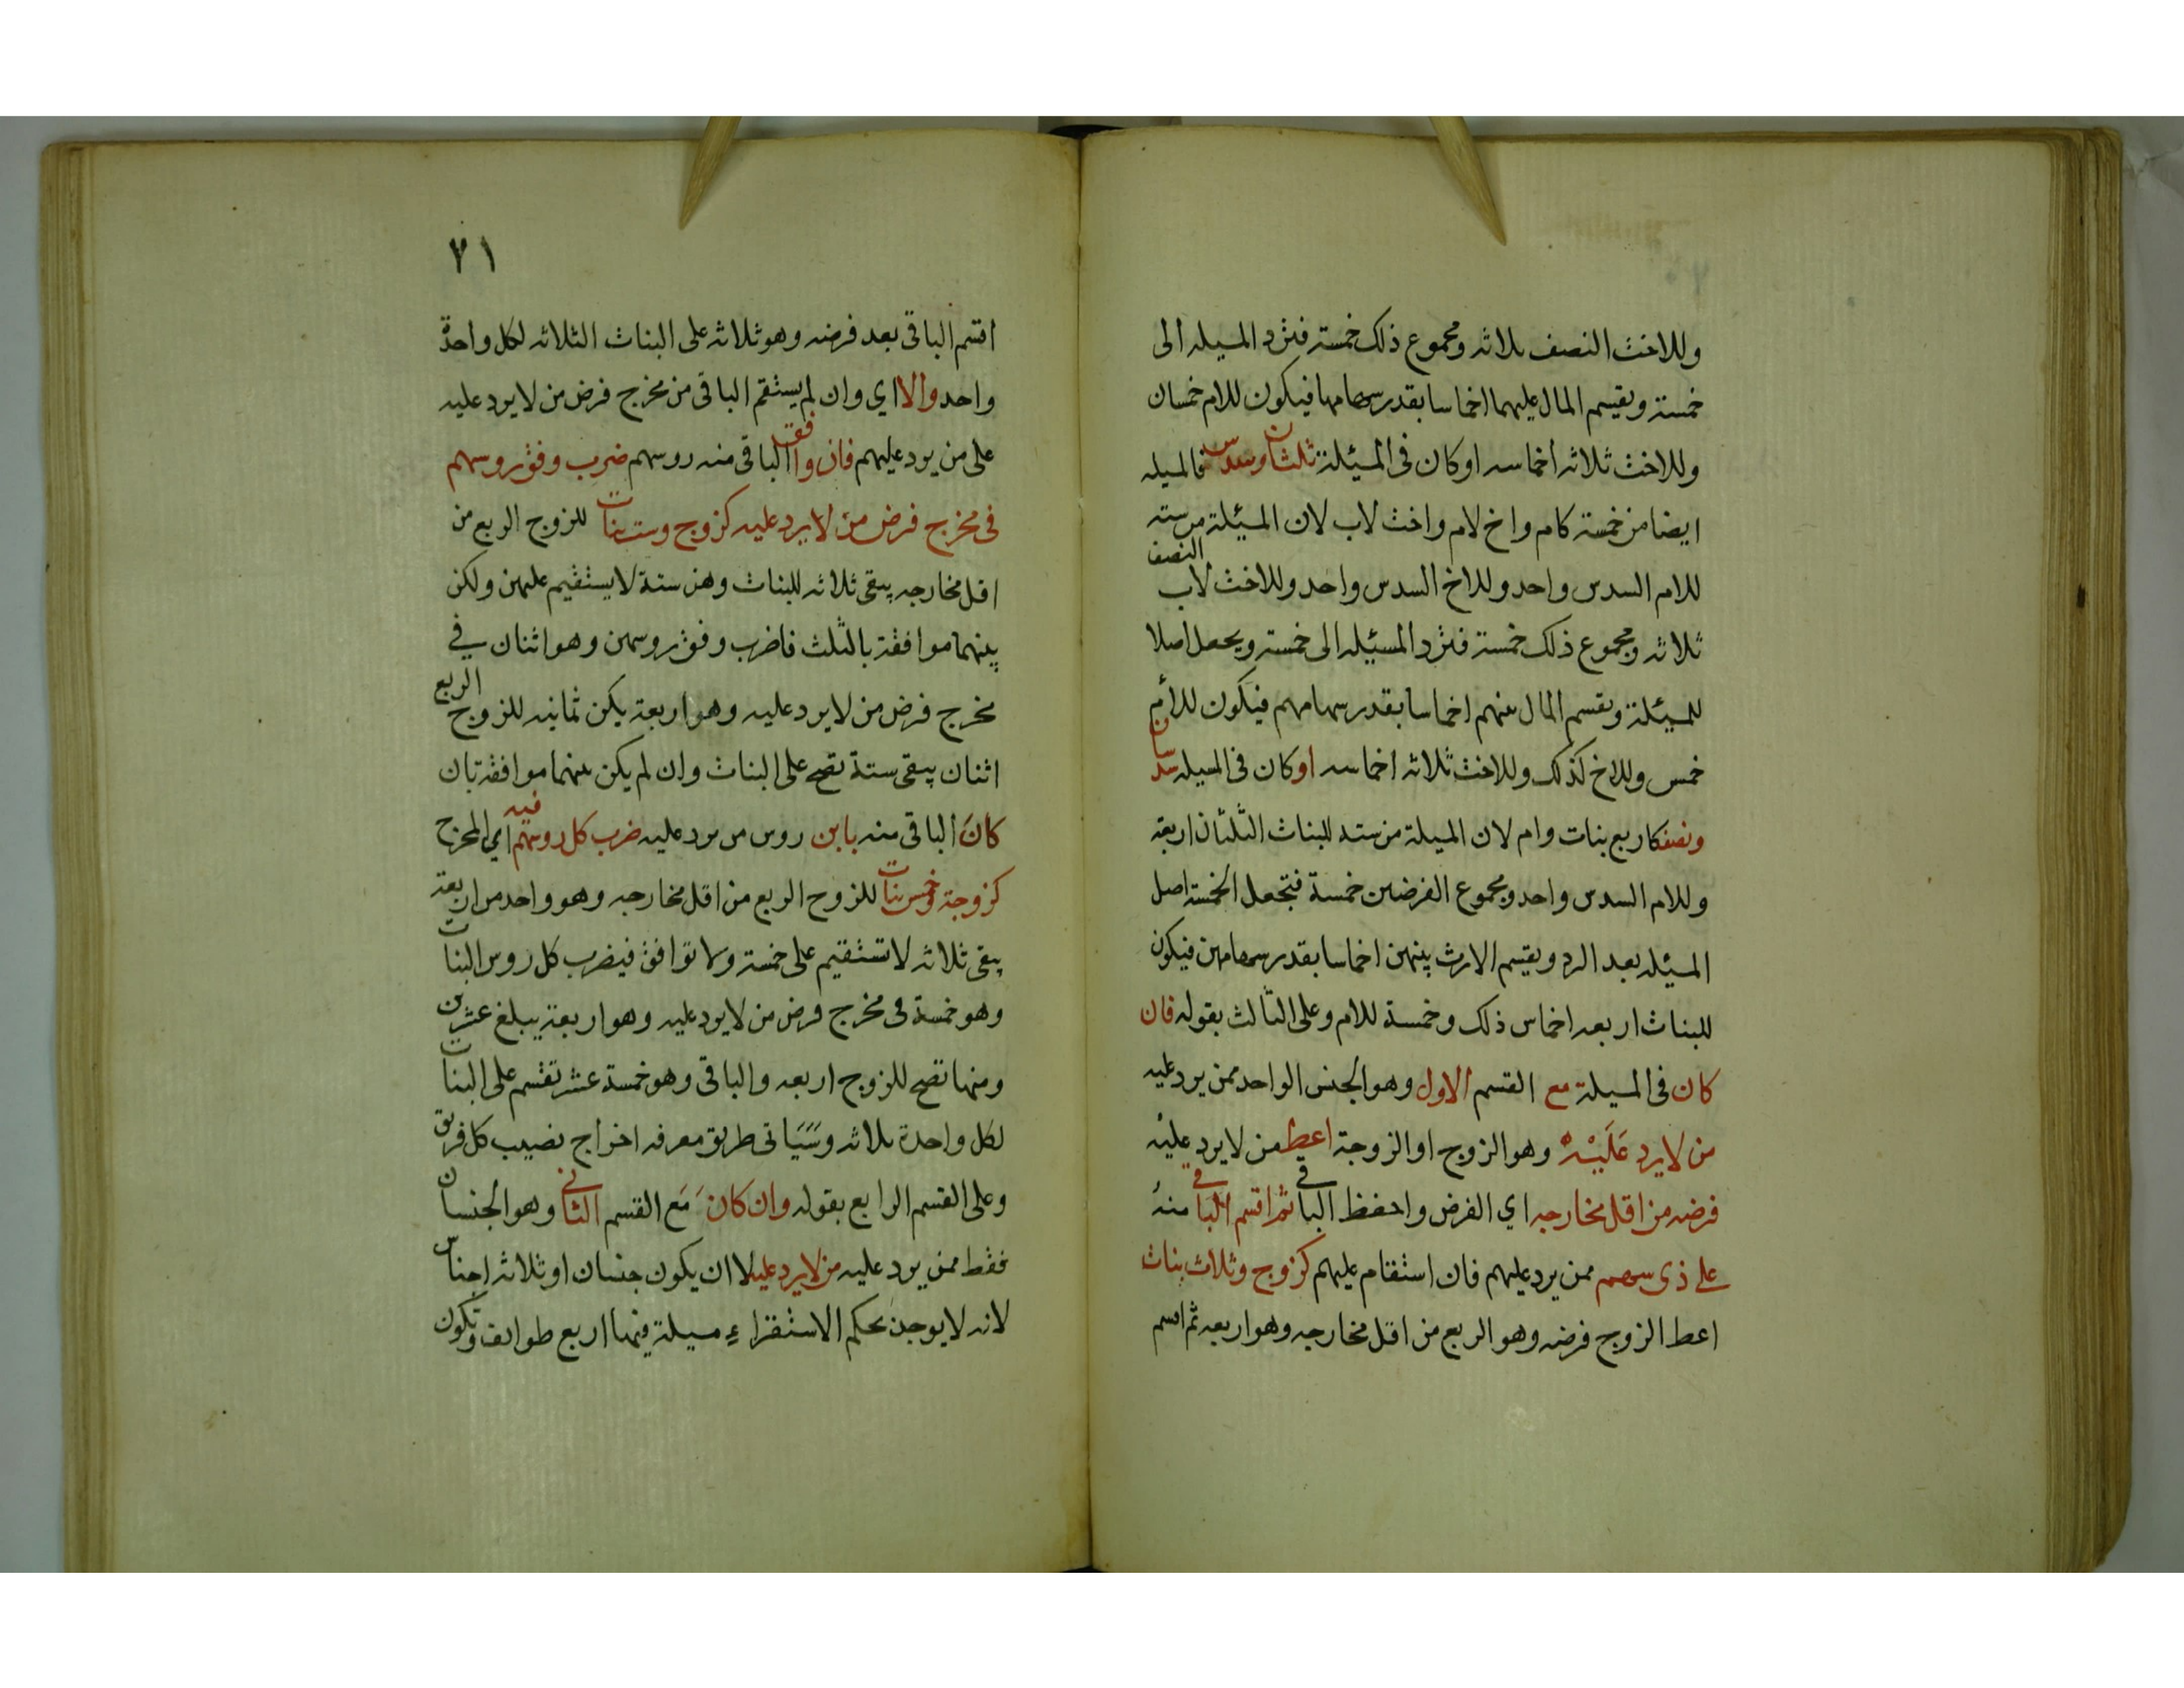 وللاخت النصف ثلاثه ومجموع ذلك خمسة فترد المسيله الى
خمسة ويقسم المال عليهما اخماسا بقدر سهامهما فيكون للام خمسان
وللاخت ثلاثه اخماسه او كان فى المسئلة ثلثان وسدس فالمسيله
ايضا من خمسة كام واخ لام واخت لاب لان المسئلة من سته
للام السدس واحد وللاخ السدس واحد وللاخت لاب النصف
ثلاثه ومجموع ذلك خمسة فترد المسئيله الى خمسة ويجعل اصلا
للمسئلة ويقسم المال بينهم اخماسا بقدر سهامهم فيكون للأم
خمس وللاخ كذلك وللاخت ثلاثه اخماسه او كان فى المسيله سدسان
ونصف كاربع بنات وام لان المسيلة من سته للبنات الثلثان اربعة
وللام السدس واحد ومجموع الفرضين خمسة فتجعل الخمسة اصل
المسئيله بعد الرد ويقسم الارث بينهن اخماسا بقدر سهامهن فيكون
للبنات اربعه اخماس ذلك وخمسة للام وعلى الثالث بقوله فان
كان فى المسيلة مع القسم الاول وهو الجنس الواحد ممن يرد عليه
من لا يرد عَلَيْهِ وهو الزوج او الزوجة اعط من لا يرد عليه
فرضه من اقل مخارجه اي الفرض واحفظ الباقي ثم اقسم الباقي منه
على ذى سهم ممن يرد عليهم فان استقام عليهم كزوج وثلاث بنات
اعط الزوج فرضه وهو الربع من اقل مخارجه وهو اربعه ثم اقسم
٧١
اقسم الباقى بعد فرضه وهو ثلاثه على البنات الثلاثه لكل واحدة
واحد والا اي وان لم يستقم الباقى من مخرج فرض من لا يرد عليه
على من يرد عليهم فان وافق الباقى منه روسهم ضرب وفق روسهم
فى مخرج فرض من لا يرد عليه كزوج وست بنات للزوج الربع من
اقل مخارجه يبقى ثلاثه للبنات وهن ستة لا يستقيم عليهن ولكن
بينهما موافقة بالثلث فاضرب وفق روسهن وهو اثنان في
مخرج فرض من لا يرد عليه وهو اربعة يكن ثمانيه للزوج الربع
اثنان يبقى ستة تصح على البنات وان لم يكن بينهما موافقة بان
كانَ الباقى منه باين روس من يرد عليه ضرب كل روسهم فيه اي المخرج
كزوجة وخمس بنات للزوج الربع من اقل مخارجه وهو واحد من اربعة
يبقى ثلاثه لا تستقيم على خمسة ولا توافق فيضرب كل روس البنات
وهو خمسة فى مخرج فرض من لا يرد عليه وهو اربعة يبلغ عشرين
ومنها تصح للزوج اربعه والباقى وهو خمسة عشر تقسم على البنات
لكل واحدة ثلاثه وسَيَاتى طريق معرفه اخراج نصيب كل فريق
وعلى القسم الرابع بقوله وان كانَ مَع القسم الثاني وهو الجنسان
فقط ممن يرد عليه من لا يرد عليه لا ان يكون جنسان او ثلاثه اجناس
لانه لا يوجد بحكم الاستقراء مسيلة فيها اربع طوايف وتكون